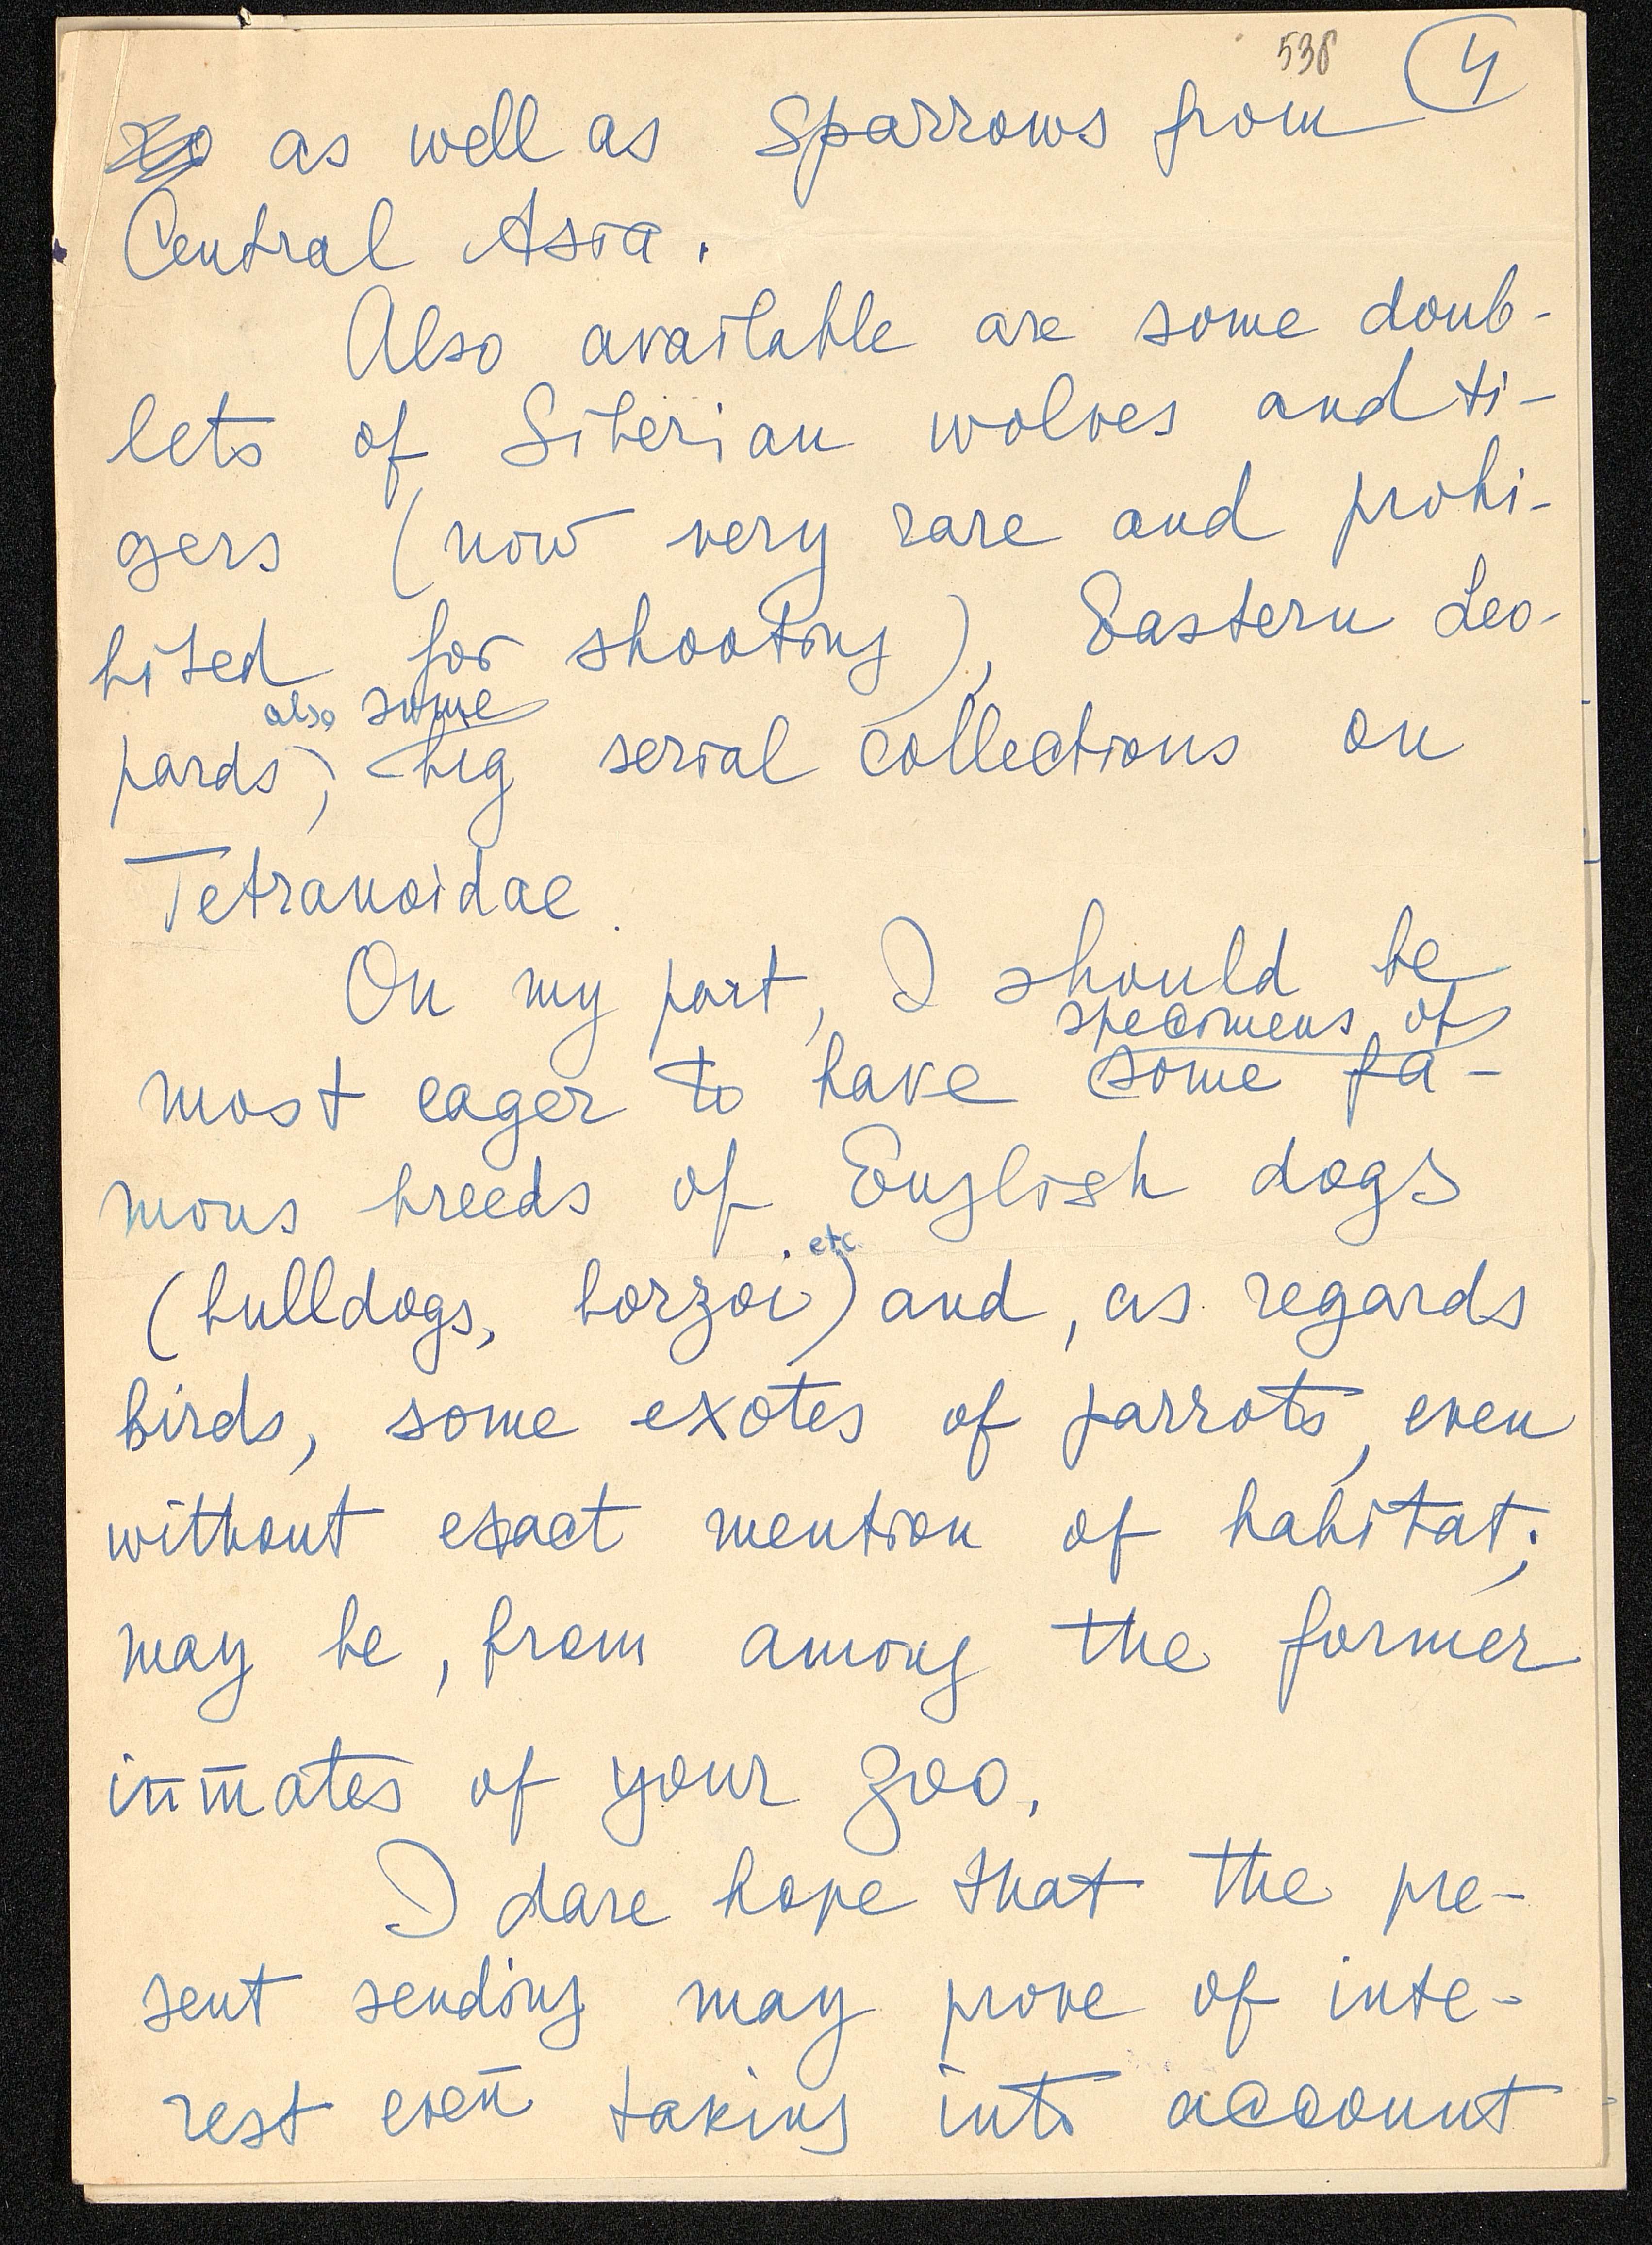 538 4
as well as Sparrows from
Central Asia.
Also available are some doub-
lets of Siberian wolves and ti-
gers (now very rare and prohi-
bited for shooting), Eastern Leo-
also some
pards; big serial collections on
Tetranoidae.
On my part, I should be
specimens of
most eager to have some fa-
mous breeds of English dogs
etc
(bulldogs, borzoi) and, as regards
birds, some exotes of parrots, even
without exact mention of habitat;
may be, from among the former
inmates of your zoo.
I dare hope that the pre-
sent sending may prove of inte-
rest even taking into account